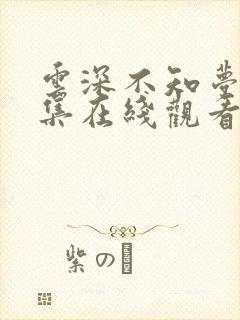 雲深不知夢
集在綫觀看
紫の